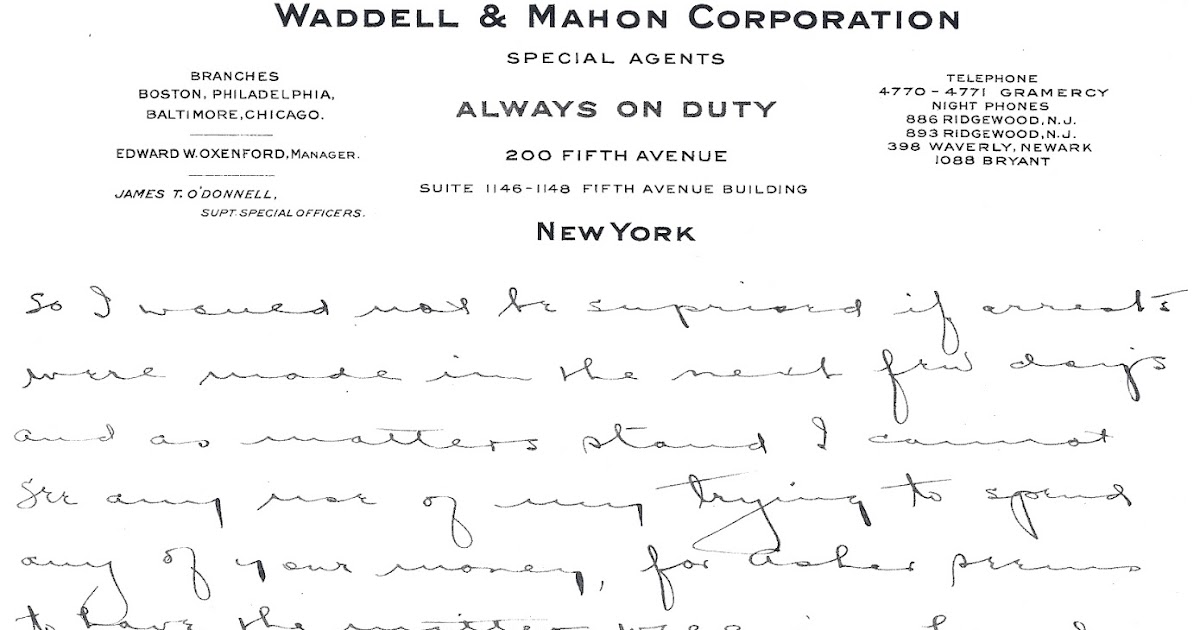 WADDELL & MAHON CORPORATION
SPECIAL AGENTS
ALWAYS ON DUTY
200 FIFTH AVENUE
SUITE 1146-1148 FIFTH AVENUE BUILDING
NEW YORK
BRANCHES
BOSTON, PHILADELPHIA,
BALTIMORE, CHICAGO.
EDWARD W. OXENFORD, MANAGER.
JAMES T. O'DONNELL,
SUPT. SPECIAL OFFICERS.
TELEPHONE
4770-4771 GRAMERCY
NIGHT PHONES
886 RIDGEWOOD, N.J.
893 RIDGEWOOD, N.J.
398 WAVERLY, NEWARK
1088 BRYANT
So I would not be suprised if arrests
were made in the next few days
and as matters stand I cannot
see any use of my trying to spend
any of your money, for Asher seems
to have the matter well in